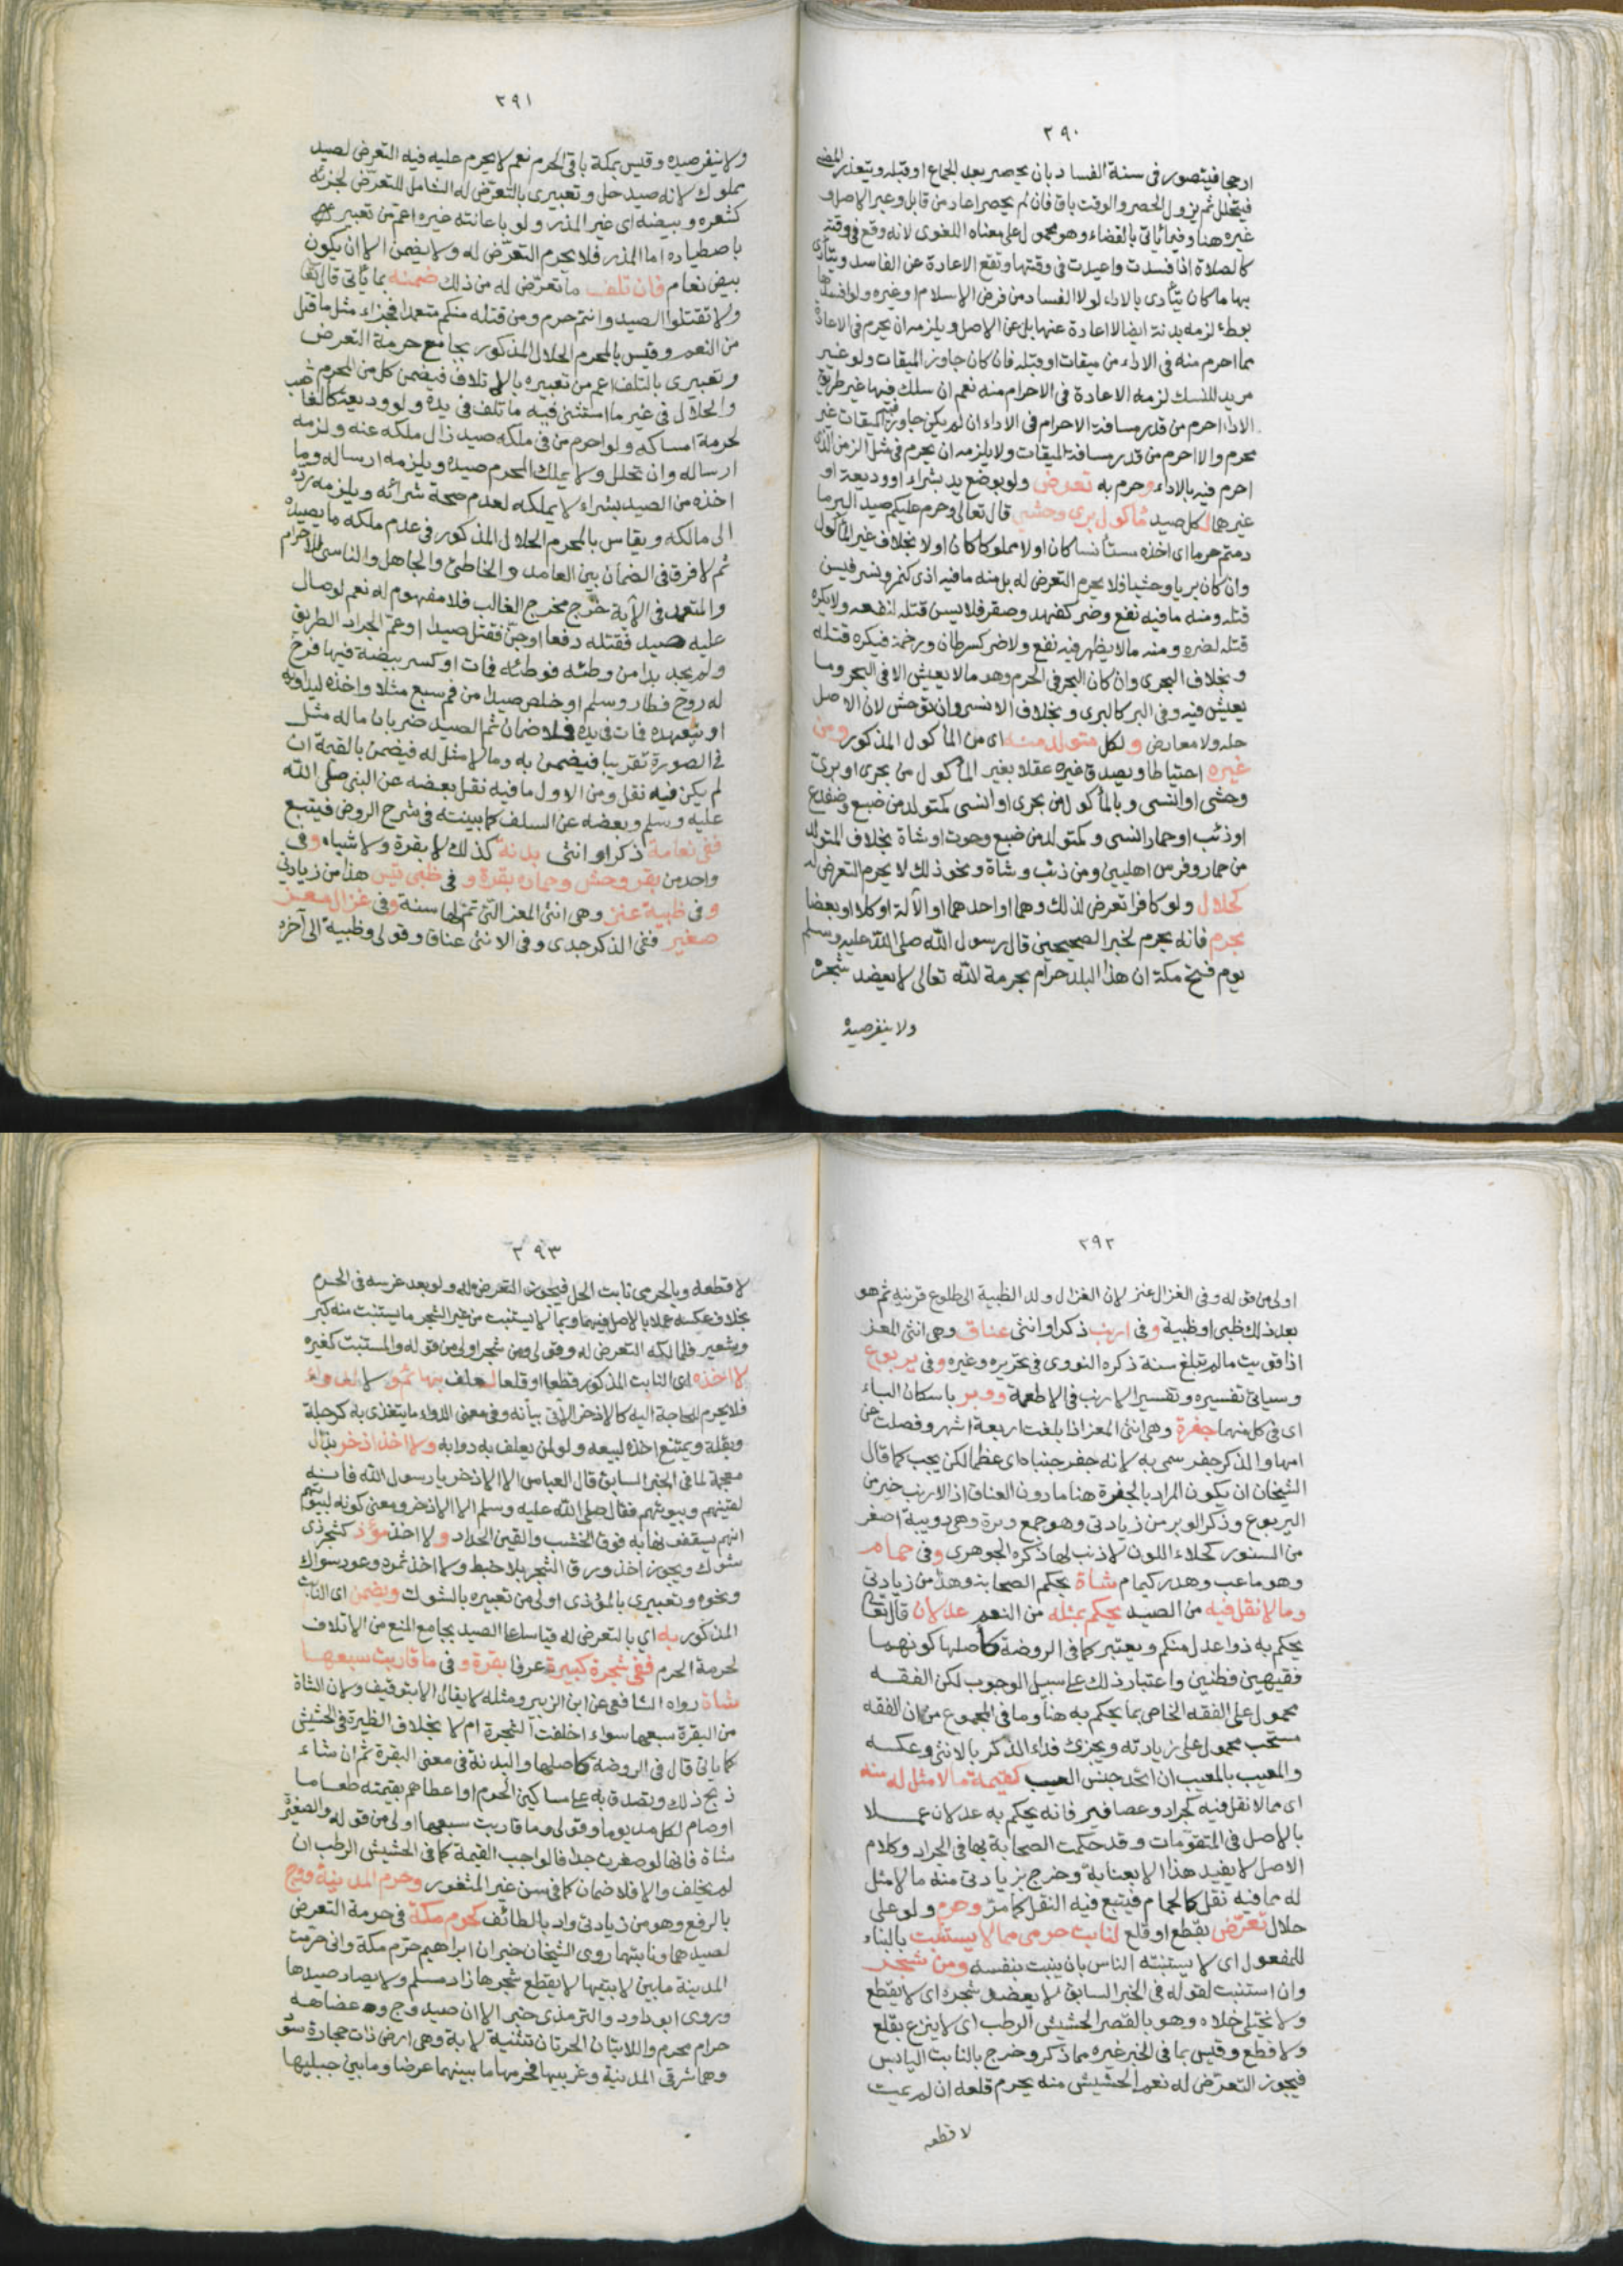 ٢٩٠
ارجحا فيتصور في سنة الفساد بان يحصر بعد الجماع او قبله ويتعذر المضى
فيتحلل ثم يزول الحصر والوقت باق فان لم يحصر اعاد من قابل وعبر الاصل و
غيره هنا وفيما ياتى بالقضاء وهو محمول على معناه اللغوى لانه وقع فى وقته
كالصلاة اذا فسدت واعيدت فى وقتها وتقع الاعادة عن الفاسد ويتأدى
بها ما كان يتأدى بالاداء لولا الفساد من فرض الاسلام او غيره ولو افسدها
بوطء لزمه بدنة ايضا لا اعادة عنها بل عن الاصل ويلزمه ان يحرم فى الاعادة
مما احرم منه فى الاداء من ميقات او قبله فان كان جاوز الميقات ولو غير
مريد للنسك لزمه الاعادة فى الاحرام منه نعم ان سلك فيها غير طريق
الاداء احرم من قدر مسافة الاحرام فى الاداء ان لم يكن جاوز فيه الميقات غير
محرم والا احرم من قدر مسافة الميقات ولا يلزمه ان يحرم فى مثل الزمن الذى
احرم فيه بالاداء وحرم به تعرض ولو بوضع يد بشراء او وديعة او
غيرهما لكل صيد مأكول برى وحشى قال تعالى وحرم عليكم صيد البر ما
دمتم حرما اى اخذه مستأنسا كان او لا مملوكا كان او لا بخلاف غير المأكول
وان كان بريا وحشيا فلا يحرم التعرض له بل منه ما فيه اذى كنمر ونسر فيسن
قتله ومنه ما فيه نفع وضر كفهد وصقر فلا يسن قتله لنفعه ولا يكره
قتله لضره ومنه ما لا يظهر فيه نفع ولا ضر كسرطان ورخمة فيكره قتله
وبخلاف البحرى وان كان البحر فى الحرم وهو ما لا يعيش الا فى البحر وما
يعيش فيه وفى البر كالبرى وبخلاف الانسى وان توحش لان الاصل
حله ولا معارض ولكل متولد منه اى من المأكول المذكور ومن
غيره احتياطا ويصدق غيره عقلا بغير المأكول من بحرى او برى
وحشى او انسى وبالمأكول من بحرى او انسى كمتولد من ضبع وضفدع
او ذئب او حمار انسى وكمتولد من ضبع وحوت او شاة بخلاف المتولد
من حمار وفرس اهليين ومن ذئب وشاة ونحو ذلك لا يحرم التعرض له
كحلال ولو كافرا تعرض لذلك وهما او احدهما او الآلة او كلا او بعضا
بحرم فانه يحرم لخبر الصحيحين قال رسول الله صلى الله عليه وسلم
يوم فتح مكة ان هذا البلد حرام بحرمة الله تعالى لا يعضد شجره
ولا ينفر صيده
٢٩١
ولا ينفر صيده وقيس بمكة باقى الحرم نعم لا يحرم عليه فيه التعرض لصيد
مملوك لانه صيد حل وتعبيرى بالتعرض له الشامل للتعرض لجزئه
كشعره وبيضه اى غير المذر ولو باعانته غيره اعم من تعبيره
باصطياده اما المذر فلا يحرم التعرض له ولا يضمن الا ان يكون
بيض نعام فان تلف ما تعرض له من ذلك ضمنه بما ياتى قال تعالى
ولا تقتلوا الصيد وانتم حرم ومن قتله منكم متعمدا فجزاء مثل ما قتل
من النعم وقيس بالمحرم الحلال المذكور بجامع حرمة التعرض
وتعبيرى بالتلف اعم من تعبيره بالاتلاف فيضمن كل من المحرم
والحلال فى غير ما استثنى فيه ما تلف فى يده ولو وديعة كالغاصب
لحرمة امساكه ولو احرم من فى ملكه صيد زال ملكه عنه ولزمه
ارساله وان تحلل ولا يملك المحرم صيده ويلزمه ارساله وما
اخذه من الصيد بشراء لا يملكه لعدم صحة شرائه ويلزمه رده
الى مالكه ويقاس بالمحرم الحلال المذكور فى عدم ملكه ما يصيده
ثم لا فرق فى الضمان بين العامد والخاطئ والجاهل والناسى للاحرام
والمتعمد فى الآية خرج مخرج الغالب فلا مفهوم له نعم لو صال
عليه صيد فقتله دفعا او جن فقتل صيدا او عم الجراد الطريق
ولم يجد بدا من وطئه فوطئه فمات او كسر بيضة فيها فرخ
له روح فطار وسلم او خلص صيدا من فم سبع مثلا واخذه ليداويه
او يتعهده فمات فى يده فلا ضمان ثم الصيد ضربان ما له مثل
فى الصورة تقريبا فيضمن به وما لا مثل له فيضمن بالقيمة ان
لم يكن فيه نقل ومن الاول ما فيه نقل بعضه عن النبى صلى الله
عليه وسلم وبعضه عن السلف كما بينته فى شرح الروض فيتبع
ففى نعامة ذكر او انثى بدنة كذلك لا بقرة ولا شياه وفى
واحد من بقر وحش وحماره بقرة و فى ظبى تيس هذا من زيادتى
وفى ظبية عنز وهى انثى المعز التى تم لها سنة وفى غزال معز
صغير ففى الذكر جدى وفى الانثى عناق وقولى وظبية الى آخره
٢٩٢
اولى من قوله وفى الغزال عنز لان الغزال ولد الظبية الى طلوع قرنيه ثم هو
بعد ذلك ظبى او ظبية وفى ارنب ذكر او انثى عناق وهى انثى المعز
اذا قويت ما لم تبلغ سنة ذكره النووى فى تحريره وغيره وفى يربوع
وسياتى تفسيره وتفسير الارنب فى الاطعمة ووبر باسكان الباء
اى فى كل منهما جفرة وهى انثى المعز اذا بلغت اربعة اشهر وفصلت عن
امها والذكر جفر سمى به لانه جفر جنباه اى عظما لكن يجب كما قال
الشيخان ان يكون المراد بالجفرة هنا ما دون العناق اذ الارنب خير من
اليربوع وذكر الوبر من زيادتى وهو جمع وبرة وهى دويبة اصغر
من السنور كحلاء اللون لا ذنب لها ذكره الجوهرى وفى حمام
وهو ما عب وهدر كيمام شاة بحكم الصحابة وهذا من زيادتى
وما لا نقل فيه من الصيد يحكم بمثله من النعم عدلان قال تعالى
يحكم به ذوا عدل منكم ويعتبر كما فى الروضة كاصلها كونهما
فقيهين فطنين واعتبار ذلك على سبيل الوجوب لكن الفقه
محمول على الفقه الخاص بما يحكم به هنا وما فى المجموع من ان الفقه
مستحب محمول على زيادته ويجزئ فداء الذكر بالانثى وعكسه
والمعيب بالمعيب ان اتحد جنس العيب كقيمة ما لا مثل له منه
اى مما لا نقل فيه كجراد وعصافير فانه يحكم به عدلان عملا
بالاصل فى المتقومات وقد حكمت الصحابة بها فى الجراد وكلام
الاصل لا يفيد هذا الا بعناية وخرج بزيادتى منه ما لا مثل
له مما فيه نقل كالحمام فيتبع فيه النقل كما مر وحرم ولو على
حلال تعرض بقطع او قلع لنابت حرمى مما لا يستنبت بالبناء
للمفعول اى لا يستنبته الناس بان ينبت بنفسه ومن شجر
وان استنبت لقوله فى الخبر السابق لا يعضد شجره اى لا يقطع
ولا يختلى خلاه وهو بالقصر الحشيش الرطب اى لا ينزع بقلع
ولا قطع وقيس بما فى الخبر غيره مما ذكر وخرج بالنابت اليابس
فيجوز التعرض له نعم الحشيش منه يحرم قلعه ان لم يمت
لا قطعه
٢٩٣
لا قطعه وبالحرمى نابت الحل فيجوز التعرض له ولو بعد غرسه فى الحرم
بخلاف عكسه عملا بالاصل فيهما وبما لا يستنبت من غير الشجر ما يستنبت منه كبر
وشعير فلمالكه التعرض له وقولى ومن شجر اولى من قوله والمستنبت كغيره
لا اخذه اى النابت المذكور قطعا او قلعا لعلف بهائم و لا لدواء
فلا يحرم للحاجة اليه كالاذخر الآتى بيانه وفى معنى الدواء ما يتغذى به كرجلة
وبقلة ويمتنع اخذه لبيعه ولو لمن يعلف به دوابه ولا اخذ اذخر بذال
معجمة لما فى الخبر السابق قال العباس الا الاذخر يا رسول الله فانه
لقينهم وبيوتهم فقال صلى الله عليه وسلم الا الاذخر ومعنى كونه لبيوتهم
انهم يسقفونها به فوق الخشب والقين الحداد ولا اخذ مؤذ كشجر ذى
شوك ويجوز اخذ ورق الشجر بلا خبط ولا اخذ ثمره وعود سواك
ونحوه وتعبيرى بالمؤذى اولى من تعبيره بالشوك ويضمن اى النابت
المذكور به اى بالتعرض له قياسا على الصيد بجامع المنع من الاتلاف
لحرمة الحرم ففى شجرة كبيرة عرفا بقرة و فى ما قاربت سبعها
شاة رواه الشافعى عن ابن الزبير ومثله لا يقال الا بتوقيف ولان الشاة
من البقرة سبعها سواء اخلفت الشجرة ام لا بخلاف نظيره فى الحشيش
كما ياتى قال فى الروضة كاصلها والبدنة فى معنى البقرة ثم ان شاء
ذبح ذلك وتصدق به على مساكين الحرم او اعطاهم بقيمته طعاما
او صام لكل مد يوما وقولى وما قاربت سبعها اولى من قوله والصغيرة
شاة فانها لو صغرت جدا فالواجب القيمة كما فى الحشيش الرطب ان
لم يخلف والا فلا ضمان كما فى سن غير المثغور وحرم المدينة ووج
بالرفع وهو من زيادتى واد بالطائف كحرم مكة فى حرمة التعرض
لصيدهما ونابتهما روى الشيخان خبر ان ابراهيم حرم مكة وانى حرمت
المدينة ما بين لابتيها لا يقطع شجرها زاد مسلم ولا يصاد صيدها
وروى ابو داود والترمذى خبر الا ان صيد وج وعضاهه
حرام محرم واللابتان الحرتان تثنية لابة وهى ارض ذات حجارة سود
وهما شرقى المدينة وغربيها فحرمها ما بينهما عرضا وما بين جبليها